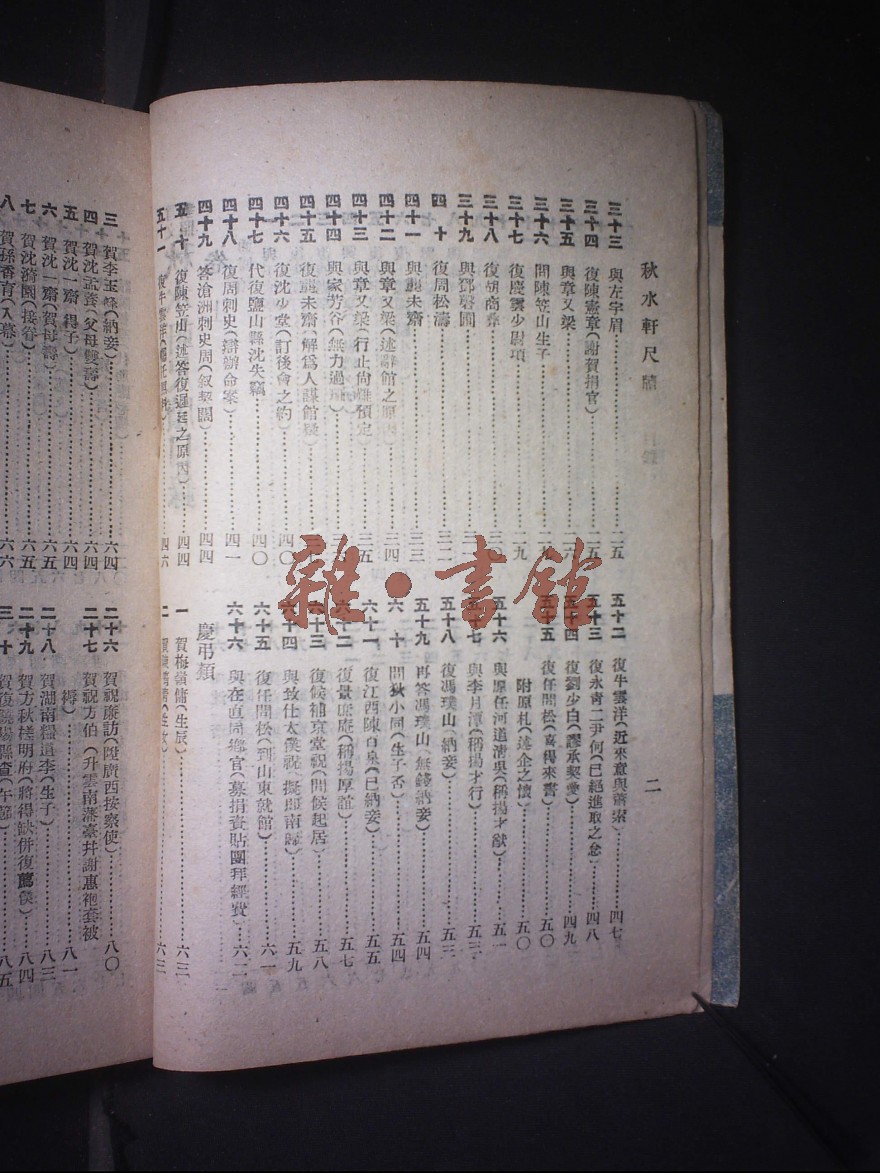 秋水軒尺牘
二
三十三 與左字眉……二五
三十四 復陳憲章（謝賀捐官）……二五
三十五 與章又梁……二六
三十六 問陳笠山生子
三十七 復慶雲少尉項……二九
三十八 復胡商彝
三十九 與鄧
四十 復周松濤……三二
四十一 與龔未齋……三三
四十二 與章又梁（述辭館之原因）……三四
四十三 與章又梁（行止尚難預定）……三五
四十四 與家芳谷（無力過
四十五 復龔未齋（解爲人謀館疑）
四十六 復沈少堂（訂後會之約）……四〇
四十七 代復鹽山縣沈失竊……四〇
四十八 復周刺史（辯辦命案）……四一
四十九 答滄洲刺史周（叙契闊）……四四
五十 復陳笠山（述答復遲延之原因）……四四
五十一 復牛雲……四六
五十二 復牛雲洋（近來意興蕭索）……四七
五十三 復永清二尹何（已絕進取之念）……四八
五十四 復劉少白（謬承契愛）……四九
五十五 復任問松（喜得來書）……五〇
附原札（述企之懷）……五〇
五十六 與原任河道清吳（稱揚才猷）……五一
五十七 與李月潭（稱揚才行）……五三
五十八 復馮璞山（納妾）……五三
五十九 再答馮璞山（無錢納妾）……五四
六十 問狄小同（生子否）……五四
六十一 復江西陳百泉（已納妾）……五五
六十二 復景庶庵（稱揚厚誼）……五七
六十三 復候補京堂祝（問候起居）……五八
六十四 與致仕太僕祝（擬卽南歸）……五九
六十五 復任問松（到山東就館）……六一
六十六 與在直同鄉官（募捐資貼團拜經費）……六二
慶弔類
一 賀梅嶺傭（生辰）……六三
二 賀……六三
三 賀李玉峰（納妾）……六四
四 賀沈　養（父母雙壽）……六四
五 賀沈一齋（得子）……六四
六 賀沈一齋（賀母壽）……六五
七 賀沈漪園（接眷）……六五
八 賀孫香育（入幕）……六六
二十六 賀祝廉訪（陞廣西按察使）……八〇
二十七 賀祝方伯（升雲南藩臺幷謝惠袍套被褥）……八一
二十八 賀湖南糧道李（生子）……八三
二十九 賀方秋槎明府（將得缺併復薦僕）……八四
三十 賀復饒陽縣查（午節）……八五
雜·書館